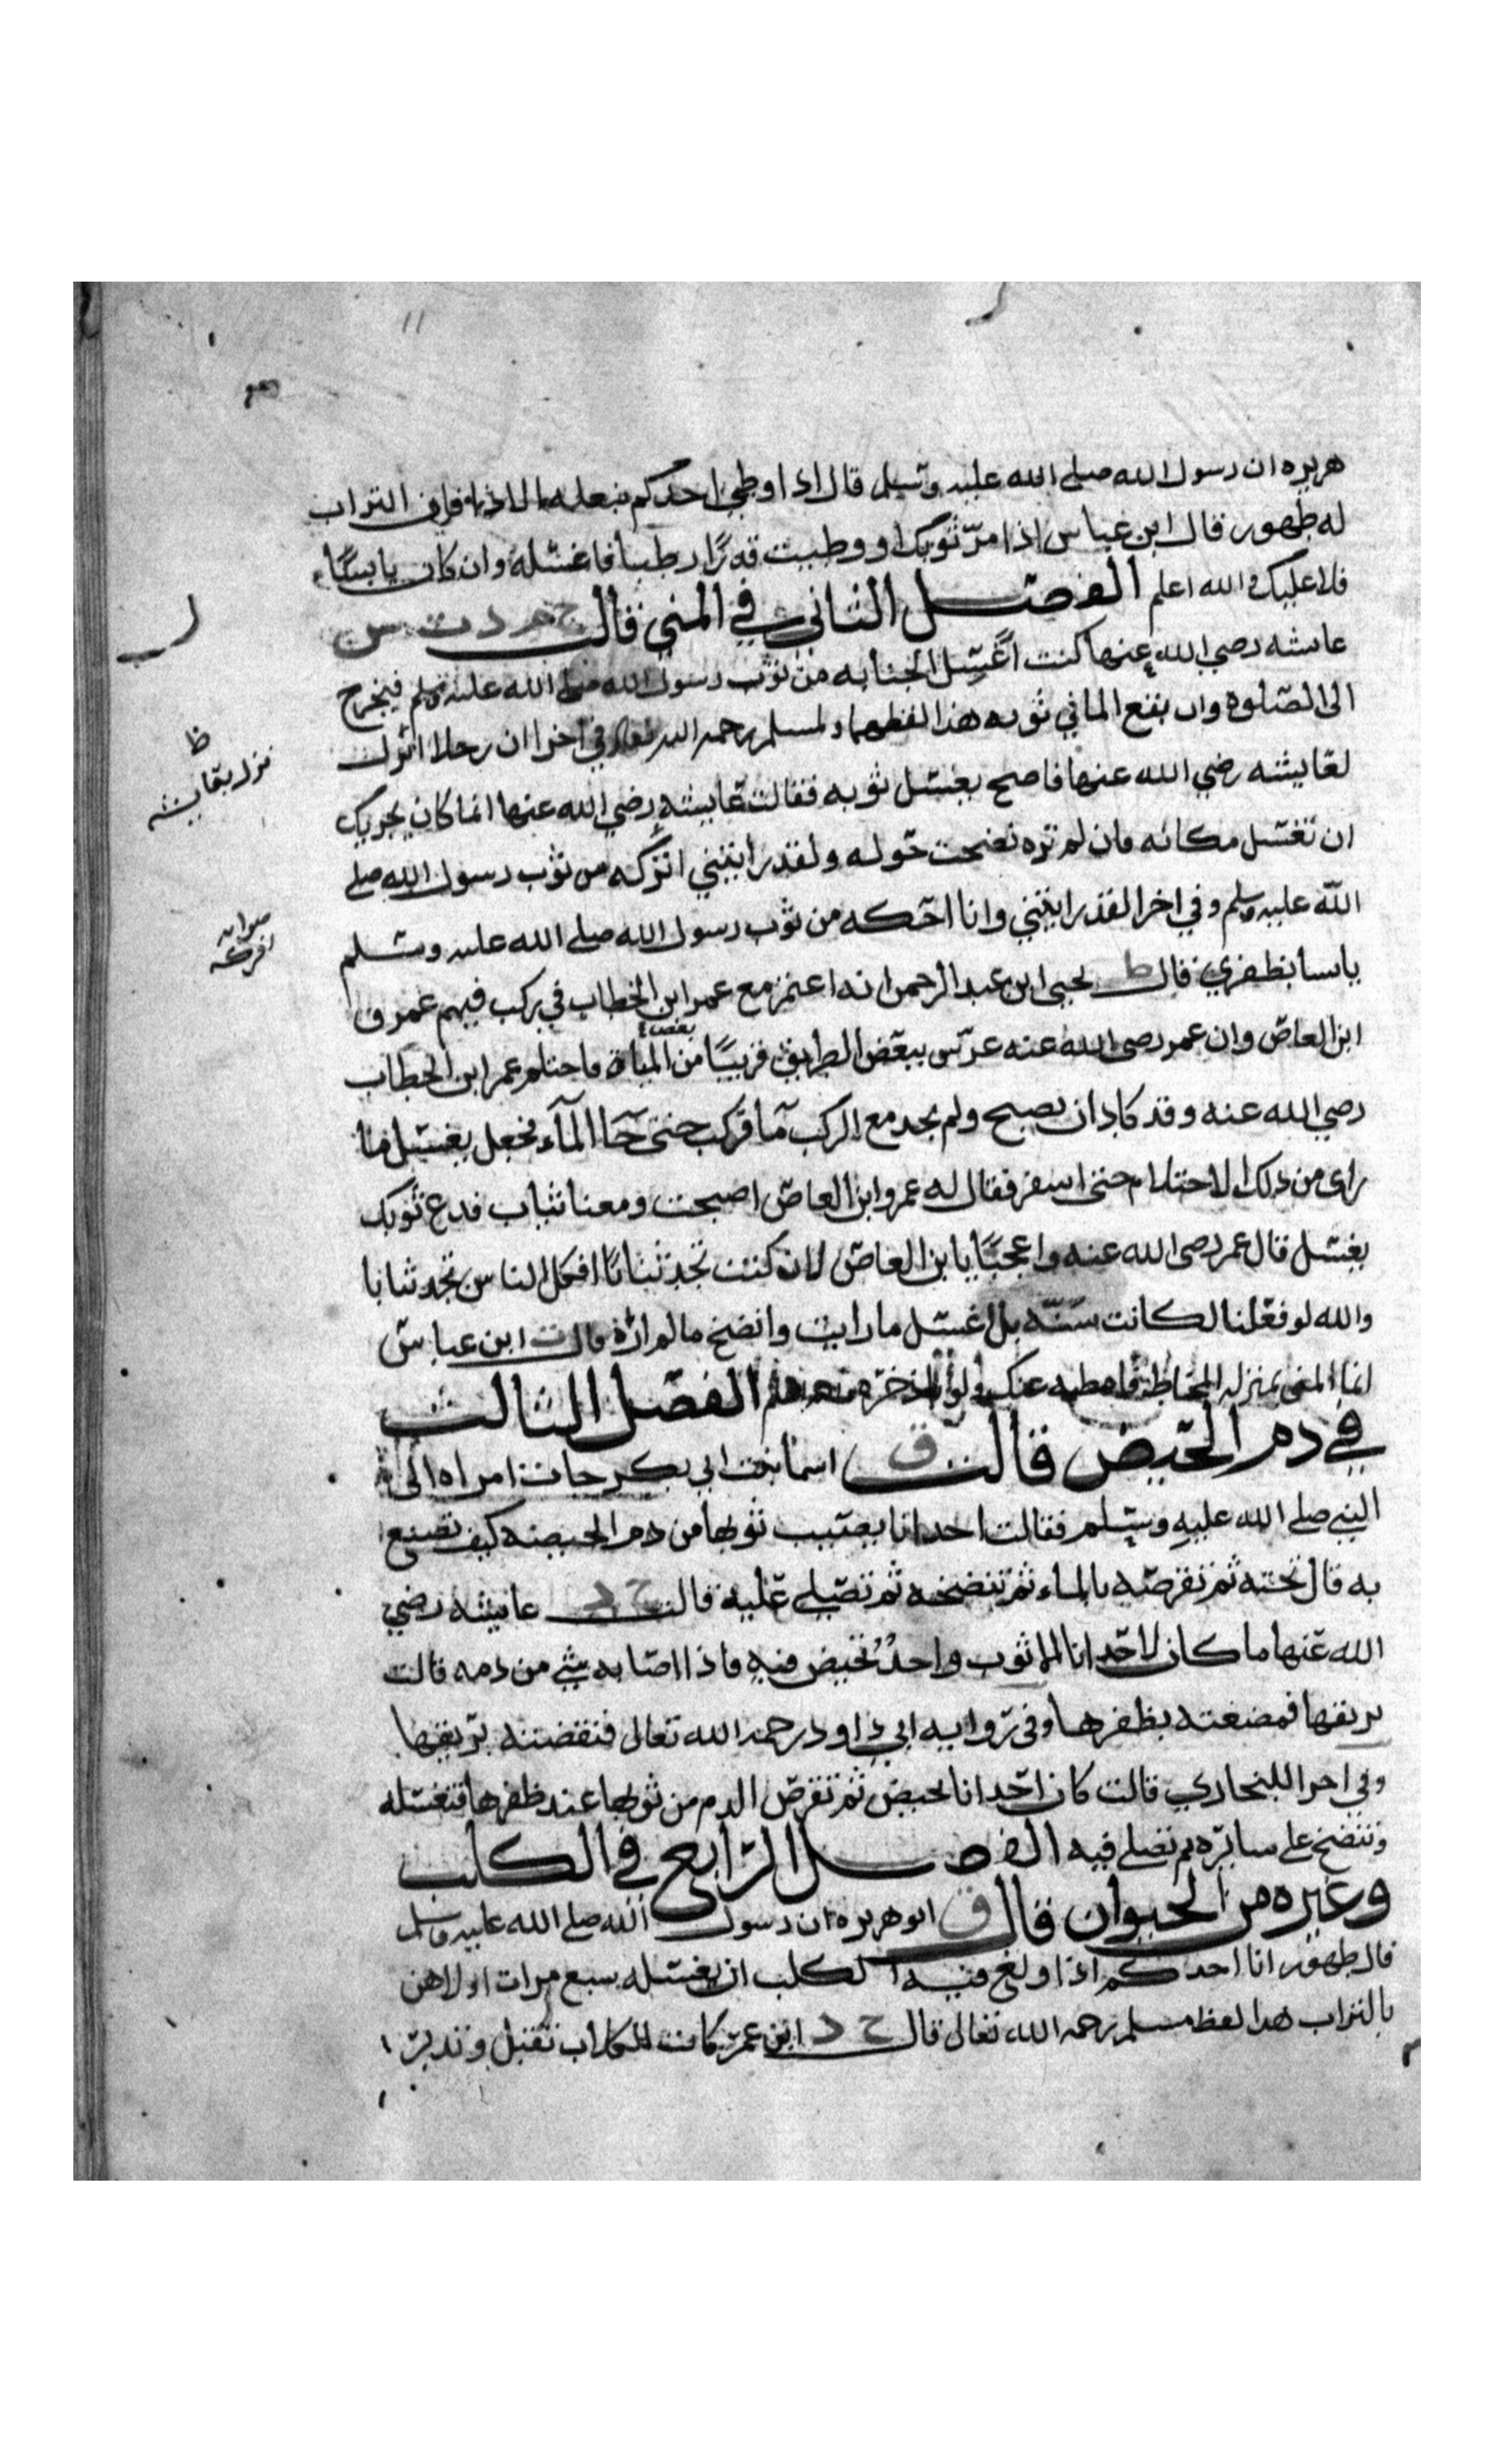 ١١
هريره ان رسول الله صلى الله عليه وسلم قال اذا وطى احدكم بنعله الاذى فان التراب
له طهور قال ابن عباس اذا مرّ ثوبك او وطيت قذرًا رطبا فاغسله وان كان يابسًا
فلا عليك والله اعلم الفصل الثاني في المني قالت خ م د ت س
عايشه رضي الله عنها كنت اغسل الجنابه من ثوب رسول الله صلى الله عليه وسلم فيخرج
الى الصلوة وان بقع الما في ثوبه هذا لفظهما ولمسلم رحمه الله تعالى في اخرا ان رجلا انزل
لعايشه رضي الله عنها فاصبح يغسل ثوبه فقالت عايشه رضي الله عنها انما كان يجزيك
ان تغسل مكانه فان لم تره نضحت حوله ولقد رايتني اتركه من ثوب رسول الله صلى
الله عليه وسلم وفي اخرا لقد رايتني وانا احكه من ثوب رسول الله صلى الله عليه وسلم
يابسا بظفري قال ط يحيى ابن عبد الرحمن انه اعتمر مع عمر ابن الخطاب في ركب فيهم عمرو
ابن العاص وان عمر رضى الله عنه عرّس ببعض الطريق قريبًا من بعض المياه فاحتلم عمر ابن الخطاب
رضي الله عنه وقد كاد ان يصبح ولم يجد مع الركب مآ فركب حتى جآ المآء فجعل يغسل ما
راى من ذلك الاحتلام حتى اسفر فقال له عمرو ابن العاص اصبحت ومعنا ثياب فدع ثوبك
يغسل قال عمر رضى الله عنه واعجبًا يا بن العاص لان كنت تجد ثيابًا افكل الناس تجد ثيابا
والله لو فعلنا لكانت سنّه بل اغسل ما رايت وانضح ما لم اره قال ت ابن عباس
انما المنى بمنزله المخاط فامطه عنك ولو باذخره الفصل الثالث
في دم الحيض قالت ق اسما بنت ابي بكر جات امراه الى
النبي صلى الله عليه وسلم فقالت احدانا يصيب ثوبها من دم الحيضه كيف تصنع
به قال تحته ثم تقرصه بالماء ثم تنضحه ثم تصلي عليه قالت خ د عايشه رضي
الله عنها ما كان لاحدانا الا ثوب واحدٌ تحيض فيه فاذا اصابه شي من دمه قالت
بريقها فمصعته بظفرها وفي روايه ابي داود رحمه الله تعالى فنقضته بريقها
وفي اخرا للبخاري قالت كان احدانا تحيض ثم تقرص الدم من ثوبها عند ظفرها فتغسله
وتنضح على سايره ثم تصلي فيه الفصل الرابع في الكلب
وغيره من الحيوان قال ق ابو هريره ان رسول الله صلى الله عليه وسلم
قال طهور انا احدكم اذا ولغ فيه الكلب ان يغسله سبع مرات اولاهن
بالتراب هذا لفظ مسلم رحمه الله تعالى قال خ د ابن عمر كانت الكلاب تقبل وتدبر
ظ
نزل بعايشه
صوابه
افركه